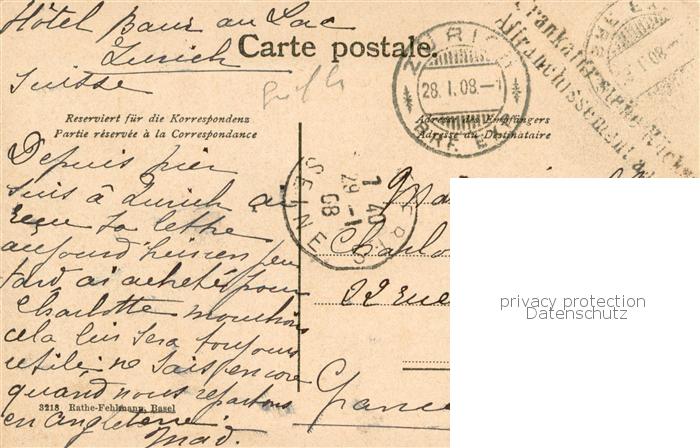 Hôtel Baur au Lac
Zurich
Suisse
Carte postale.
ZÜRICH
28. I. 08.–
BRF. EXP.
Frankatur siehe Rück
Affranchissement au
28. I. 08.–
Reserviert für die Korrespondenz
Partie réservée à la Correspondance
Adresse des Empfängers
Adresse du Destinataire
Depuis hier
suis à Zurich ai
reçu ta lettre
aujourd'hui un peu
tard ai acheté pour
Charlotte mouchoirs
cela lui sera toujours
utile ne sais encore
quand nous repartons
en Angleterre
Mad.
SEINE
7 40
29 – 1
08
Charlo
22 rue
France
3218 Rathe-Fehlmann, Basel
privacy protection
Datenschutz